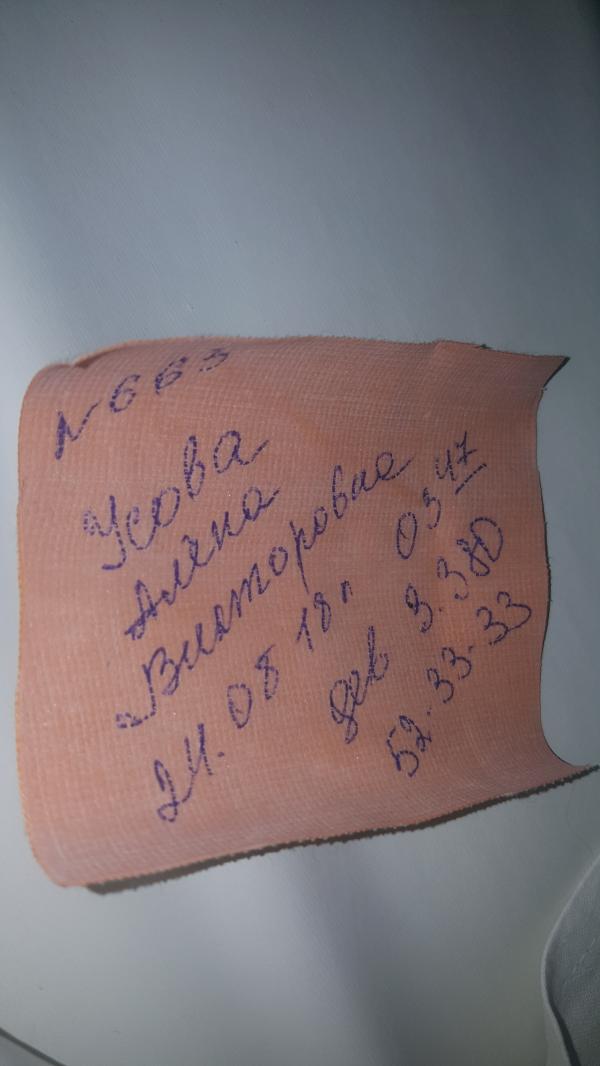 № 663
Усова
Алёна
Викторовна
24.08 18г. 03 47
дев 3.380
52-33-33